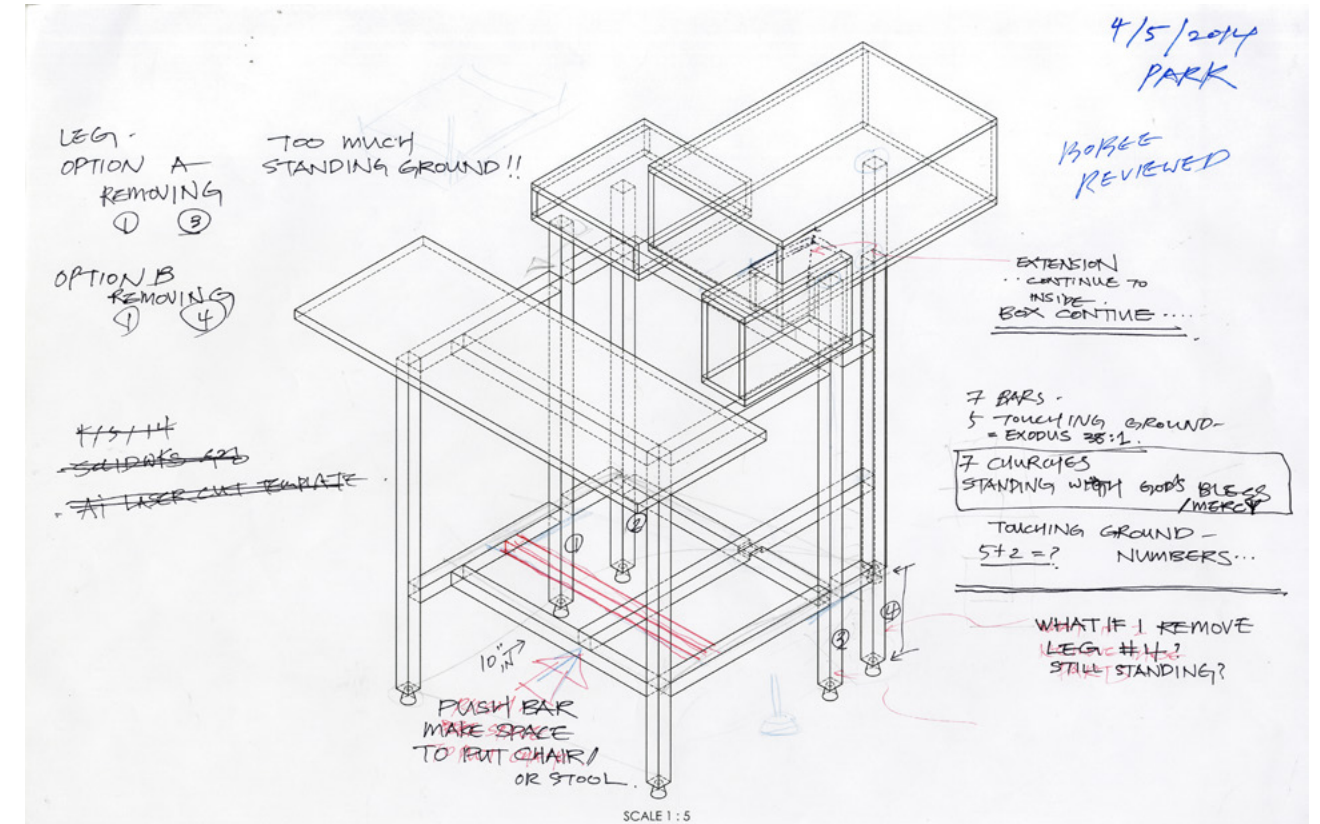 4/5/2014
PARK
BOBEE
REVIEWED
LEG.
OPTION A
REMOVING
① ③
TOO MUCH
STANDING GROUND!!
OPTION B
REMOVING
① ④
4/5/14
SOLIDWKS
AI LASER CUT TEMPLATE
EXTENSION
CONTINUE TO
INSIDE.
BOX CONTINUE ....
7 BARS.
5 TOUCHING GROUND-
= EXODUS 38:1.
7 CHURCHES
STANDING WITH GOD'S BLESS
/MERCY
TOUCHING GROUND -
5+2=? NUMBERS...
WHAT IF I REMOVE
LEG #4?
STILL STANDING?
①
②
③
④
10" IN
PUSH BAR
MAKE SPACE
TO PUT CHAIR/
OR STOOL.
SCALE 1 : 5